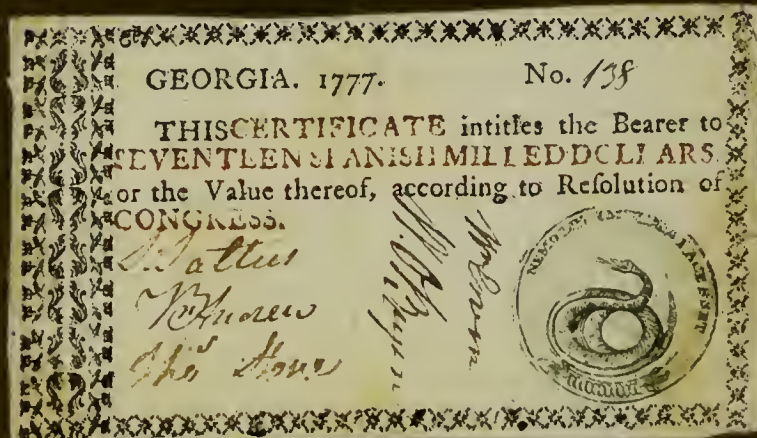 GEORGIA. 1777. No. 138
THIS CERTIFICATE intitles the Bearer to
SEVENTEEN SPANISH MILLED DOLLARS,
or the Value thereof, according to Reſolution of
CONGRESS.
Wm Andrew
Thos Stone
NEMO ME IMPUNE LACESSET